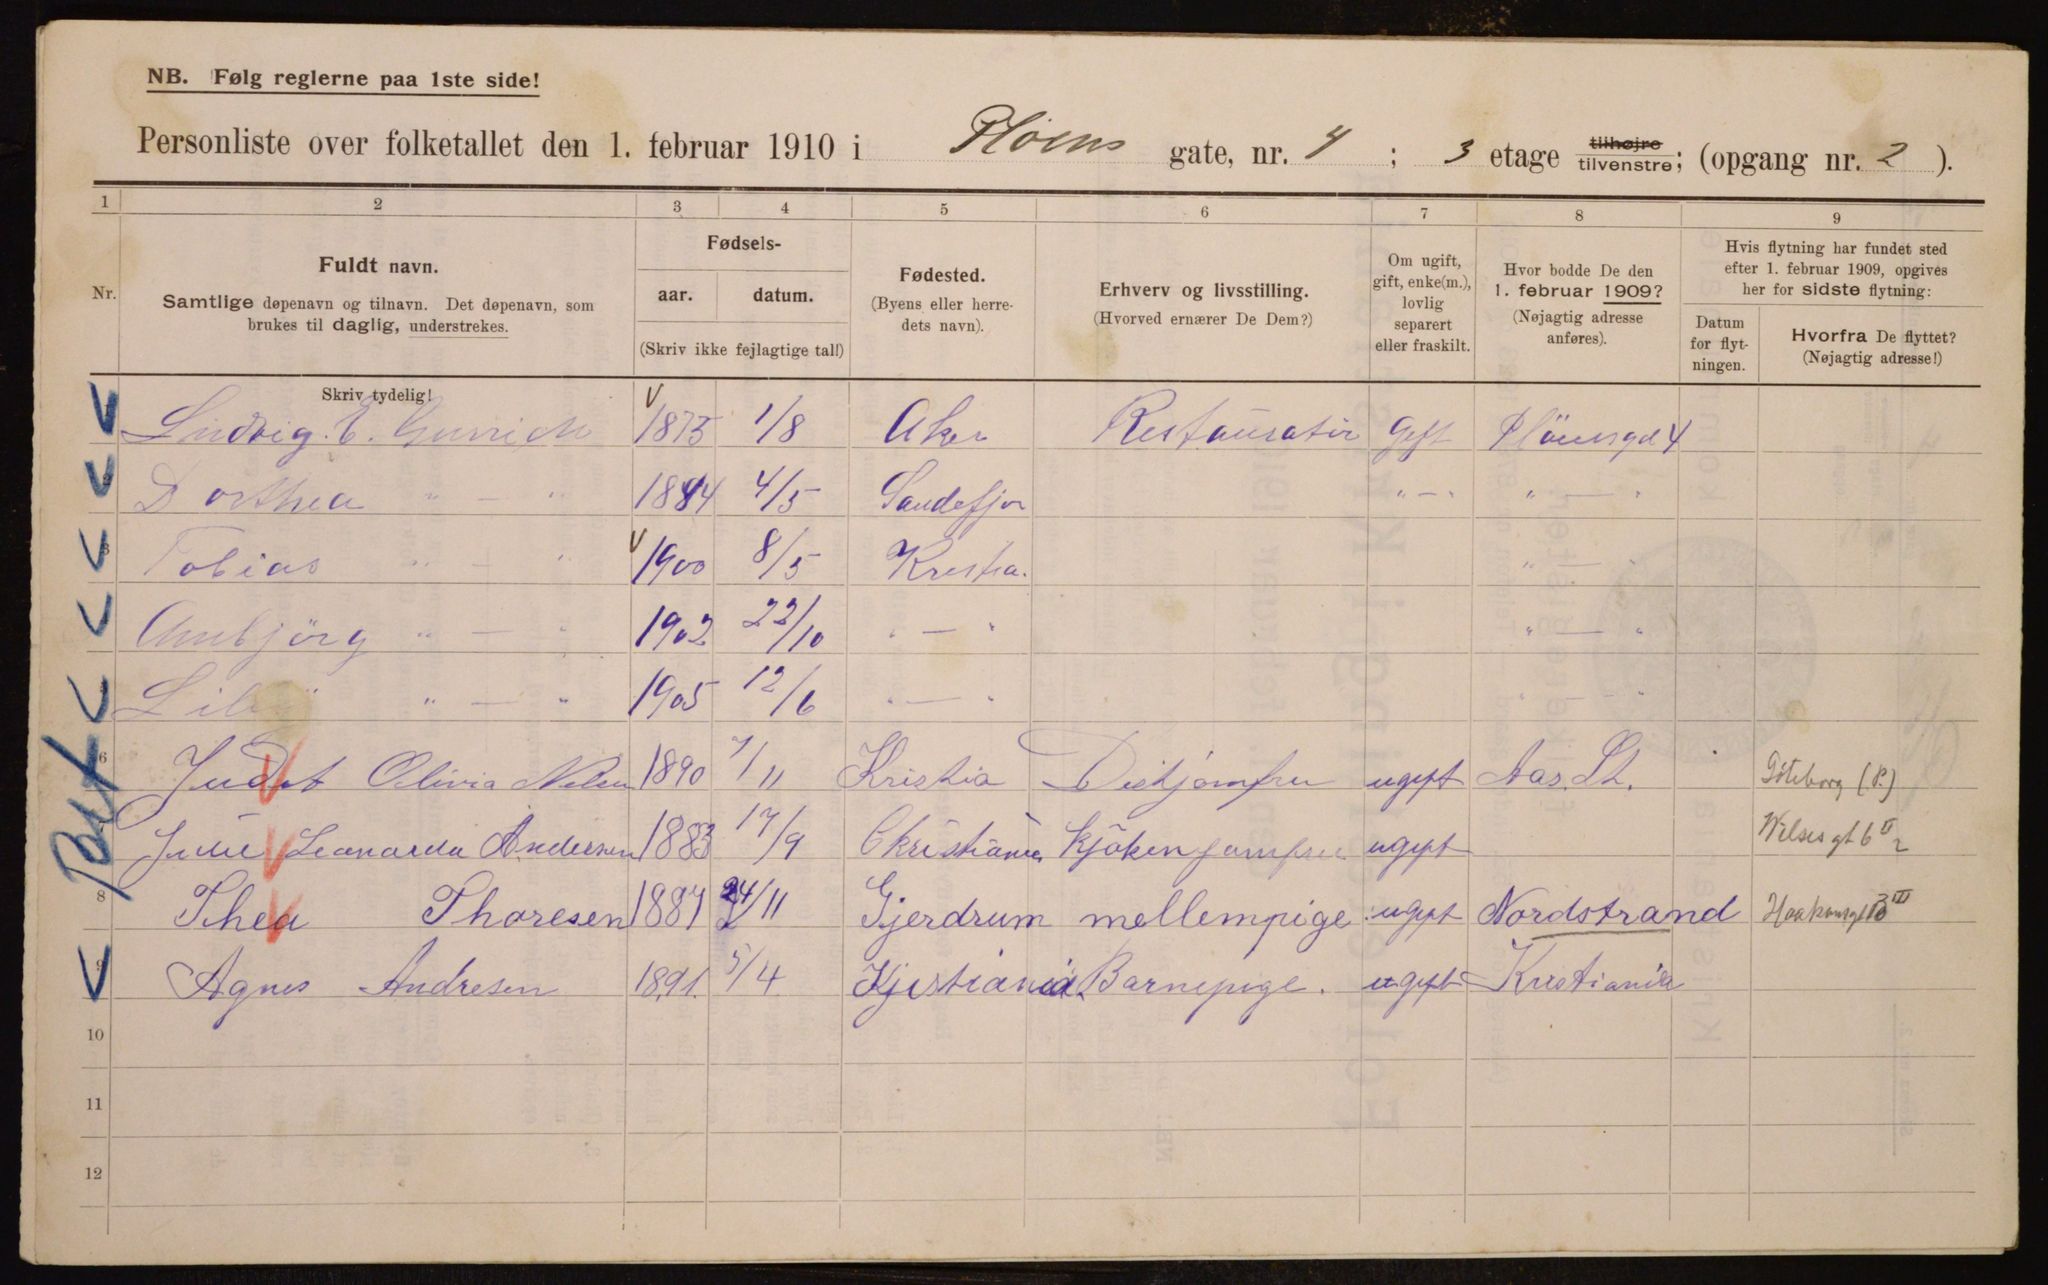 NB. Følg reglerne paa 1ste side!
Personliste over folketallet den 1. februar 1910 i Pløens gate, nr. 4 ; 3 etage tilhøjre tilvenstre; (opgang nr. 2 ).
1 2 3 4 5 6 7 8 9
Nr.
Fuldt navn.
Samtlige døpenavn og tilnavn. Det døpenavn, som
brukes til daglig, understrekes.
Skriv tydelig!
Fødsels-
aar. datum.
(Skriv ikke fejlagtige tal!)
Fødested.
(Byens eller herre-
dets navn).
Erhverv og livsstilling.
(Hvorved ernærer De Dem?)
Om ugift,
gift, enke(m.),
lovlig
separert
eller fraskilt.
Hvor bodde De den
1. februar 1909?
(Nøjagtig adresse
anføres).
Hvis flytning har fundet sted
efter 1. februar 1909, opgives
her for sidste flytning:
Datum
for flyt-
ningen.
Hvorfra De flyttet?
(Nøjagtig adresse!)
Ludvig. E. 1875 1/8 Aker Restauratör Gift Plöensgd 4
Dorthea " — " 1884 4/5 Sandefjor " — " " — "
3 Tobias " — " 1900 8/5 Krestia. " — "
Annbjörg " — " 1902 22/10 " — " " — "
" — " 1905 12/6 " — " " — "
6 Olivia Nilsen 1890 7/11 Kristia Diskjomfru ugift Aas. St. Göteborg (P.)
Leonarda Andersen 1883 17/9 Christiania Kjökenjomfru ugift Wilsesgt 6 II 2
8 Thea Thoresen 1887 24/11 Gjerdrum mellempige ugift Nordstrand III
9 Agnes Andresen 1891. 5/4 Kjristiania. Barnepige. ugift Kristiania
10
11
12